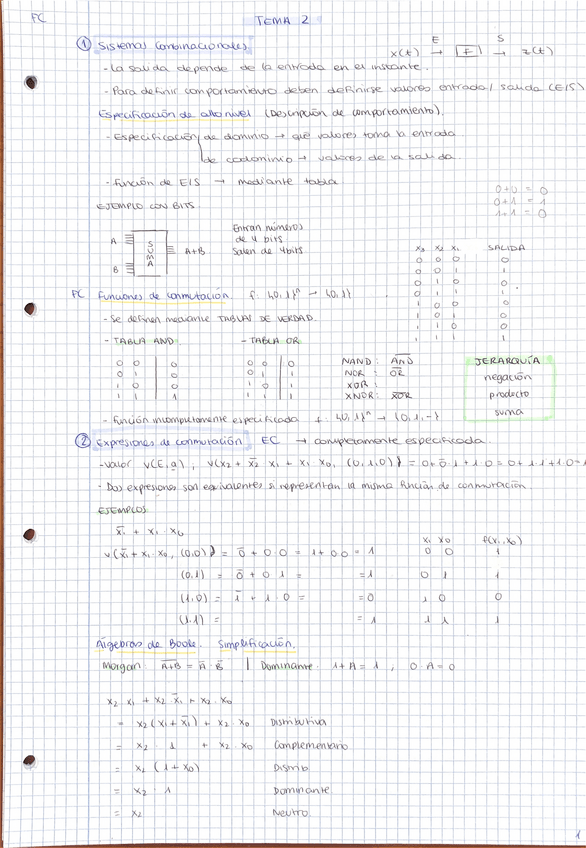 FC
TEMA 2
① Sistemas Combinacionales.
E S
x(t) → [F] → z(t)
- La salida depende de la entrada en el instante.
- Para definir comportamiento deben definirse valores entrada/salida (E/S)
Especificación de alto nivel (Descripción de comportamiento).
- Especificación de dominio → qué valores toma la entrada
de codominio → valores de la salida.
- función de E/S → mediante tabla
EJEMPLO CON BITS.
0+0 = 0
0+1 = 1
1+1 = 0
A
B
SUMA
A+B
Entran números
de 4 bits
Salen de 4 bits.
x₃ x₂ x₁ SALIDA
0 0 0 0
0 0 1 1
0 1 0
0 1 1
1 0 0
1 0 1
1 1 0 0
1 1 1 1
FC Funciones de conmutación. f: {0,1}ⁿ → {0,1}
- Se definen mediante TABLAS DE VERDAD.
- TABLA AND
0 0 | 0
0 1 | 0
1 0 | 0
1 1 | 1
- TABLA OR
0 0 | 0
0 1 | 1
1 0 | 1
1 1 | 1
NAND: A̅N̅D̅
NOR: O̅R̅
XOR:
XNOR: X̅O̅R̅
JERARQUÍA
negación
producto
suma
- función incompletamente especificada f: {0,1}ⁿ → {0,1,-}
② Expresiones de conmutación EC → completamente especificada.
- valor v(E,a), v(x₂ + x̅₂ x₁ + x₁ x₀, (0,1,0)) = 0+0̅·1+1·0 = 0+1·1+1·0=1
- Dos expresiones son equivalentes si representan la misma función de conmutación.
EJEMPLOS
x̅₁ + x₁·x₀
v(x̅₁ + x₁·x₀, (0,0)) = 0̅ + 0·0 = 1+0·0 = 1
(0,1) = 0̅ + 0·1 = =1
(1,0) = 1̅ + 1·0 = =0
(1,1) = = 1
x₁ x₀ f(x₁,x₀)
0 0 1
0 1 1
1 0 0
1 1 1
Álgebras de Boole. Simplificación.
Morgan: A̅+̅B̅ = A̅·B̅ | Dominante: 1+A = 1, 0·A = 0
x₂·x₁ + x₂·x̅₁ + x₂·x₀
= x₂(x₁ + x̅₁) + x₂·x₀ Distributiva
= x₂ · 1 + x₂·x₀ Complementario
= x₂ (1+x₀) Distrib
= x₂ · 1 Dominante
= x₂ Neutro.
1